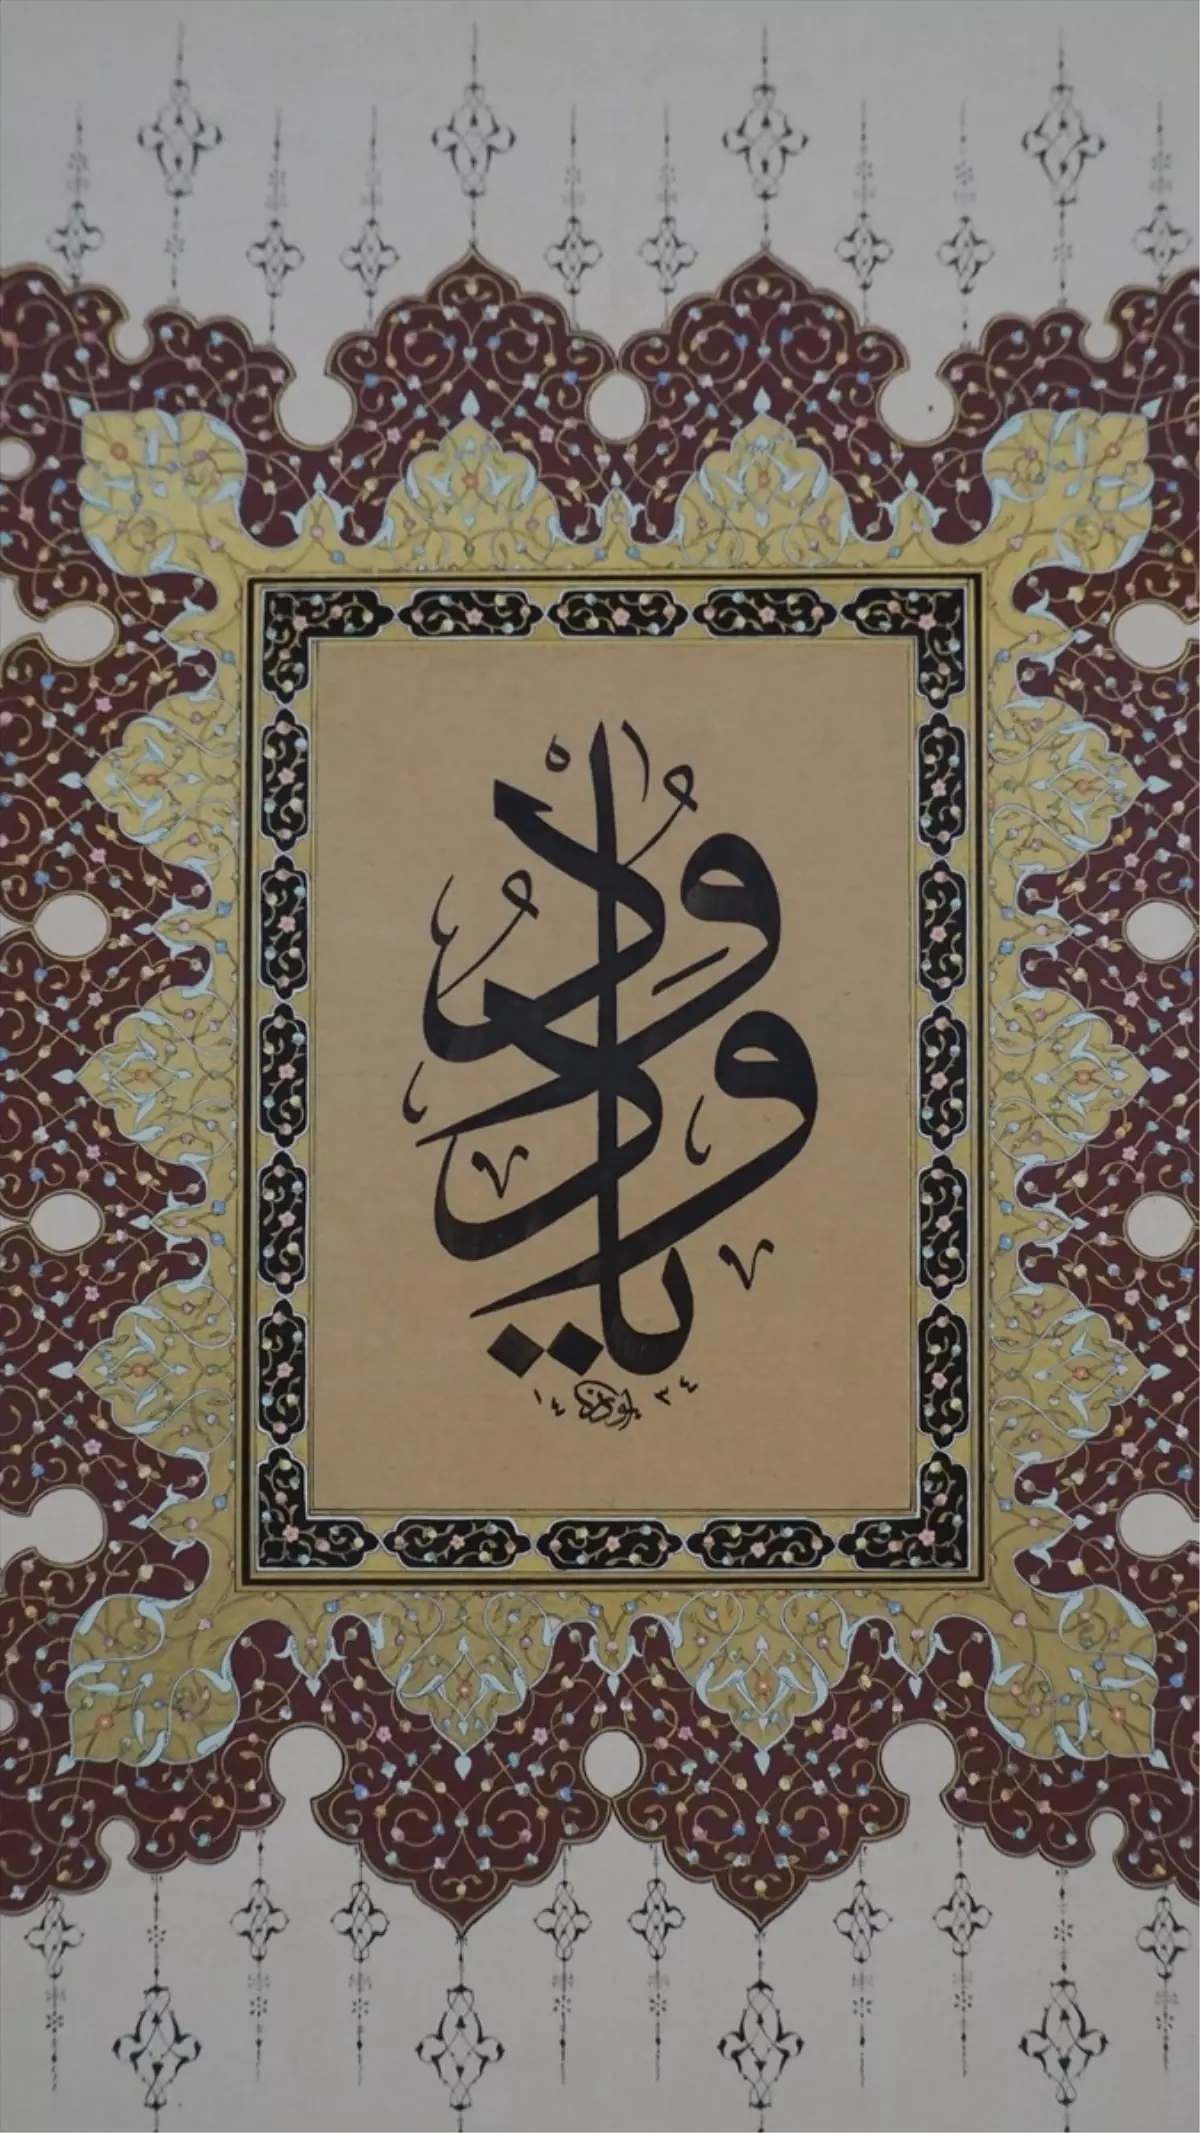 يا ودود
١٤٣٤